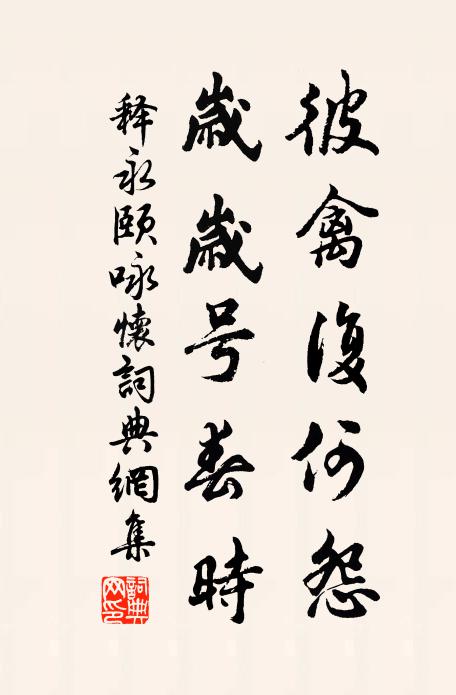 彼禽復何怨
歲歲号春時
释永颐咏懷詞典網集
詞典网印